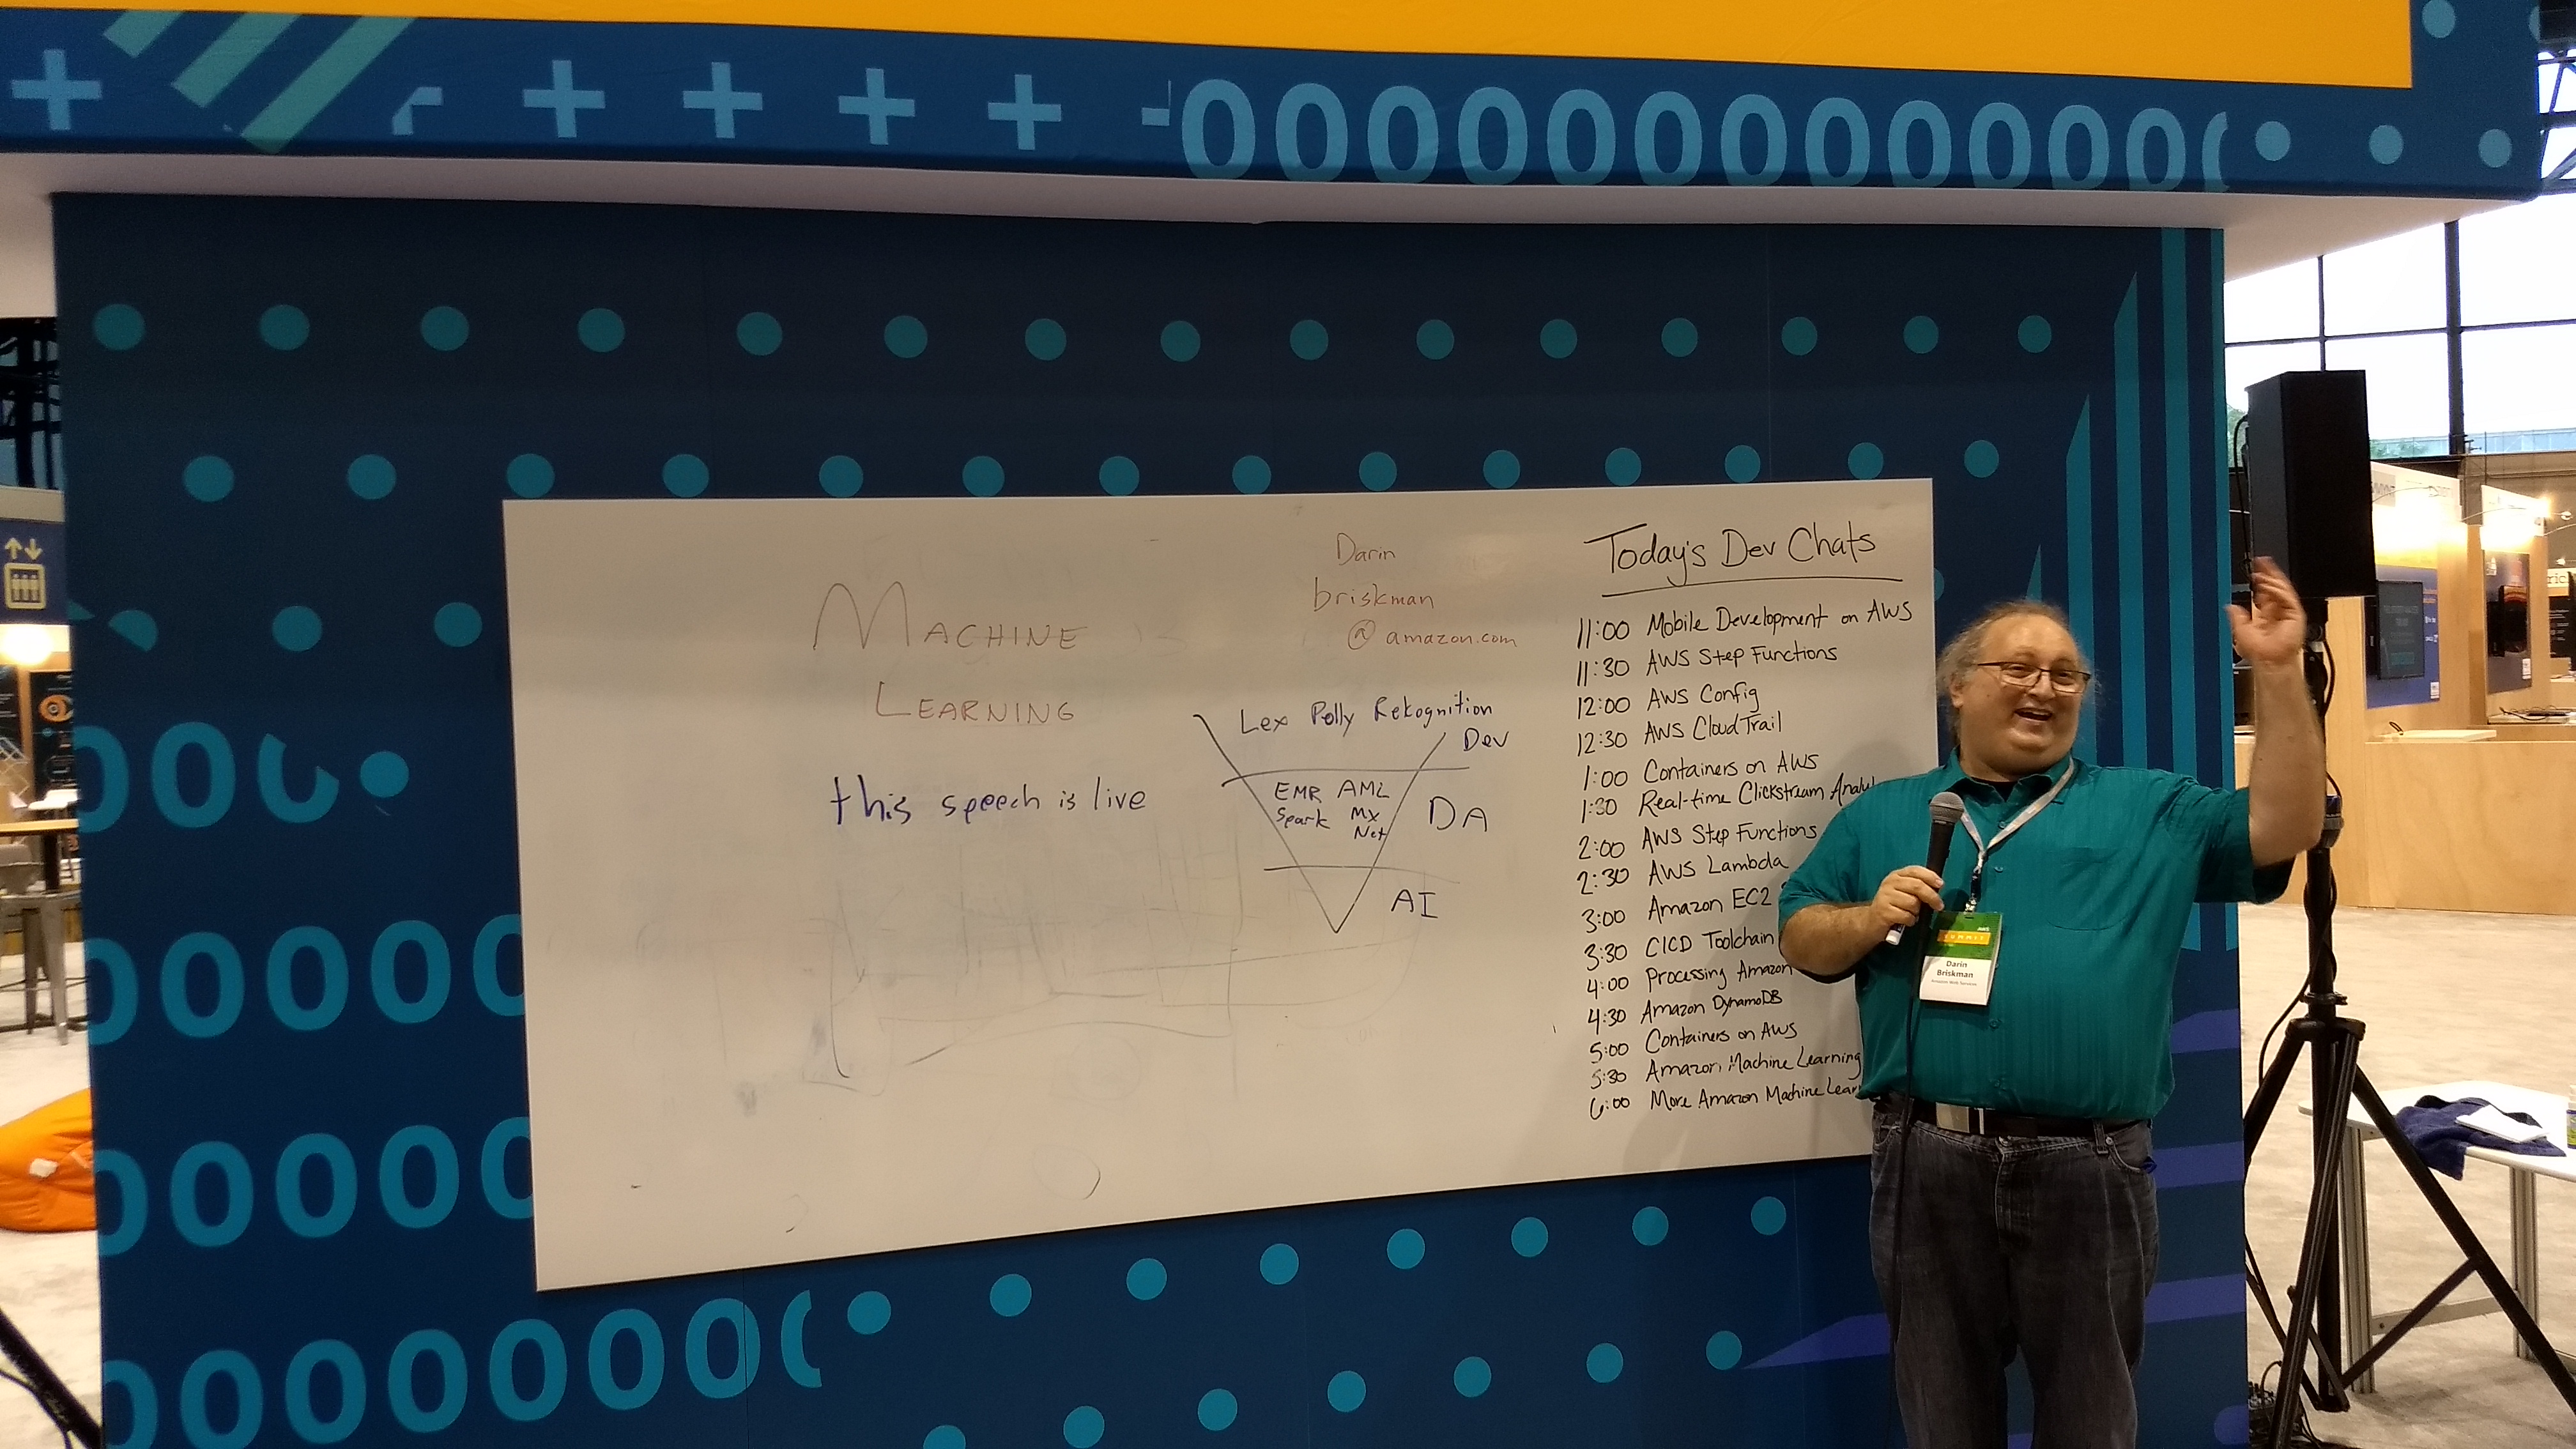 MACHINE
LEARNING
this speech is live
Darin
briskman
@ amazon.com
Lex Polly Rekognition
Dev
EMR AML
Spark MX
Net
DA
AI
Today's Dev Chats
11:00 Mobile Development on AWS
11:30 AWS Step Functions
12:00 AWS Config
12:30 AWS CloudTrail
1:00 Containers on AWS
1:30 Real-time Clickstream
2:00 AWS Step Functions
2:30 AWS Lambda
3:00 Amazon EC2
3:30 CICD Toolchain
4:00 Processing Amazon
4:30 Amazon DynamoDB
5:00 Containers on AWS
5:30 Amazon Machine Learning
6:00 More Amazon Machine
AWS
SUMMIT
Darin
Briskman
Amazon Web Services
+ + + + +
0000000000000
00
0000
0000
000000